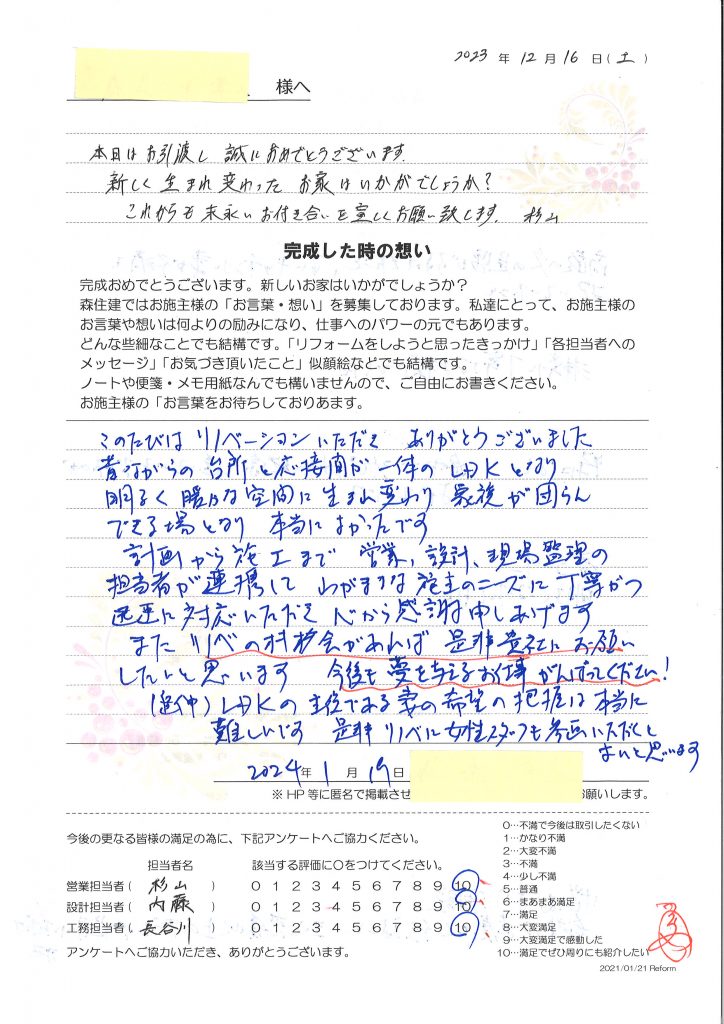 2023 年 12 月 16 日(土)
様へ
本日はお引渡し 誠におめでとうございます.
新しく生まれ変わった お家はいかがでしょうか?
これからも末永いお付き合いを宜しくお願い致します. 杉山
完成した時の想い
完成おめでとうございます。新しいお家はいかがでしょうか?
森住建ではお施主様の「お言葉・想い」を募集しております。私達にとって、お施主様の
お言葉や想いは何よりの励みになり、仕事へのパワーの元でもあります。
どんな些細なことでも結構です。「リフォームをしようと思ったきっかけ」「各担当者への
メッセージ」「お気づき頂いたこと」似顔絵などでも結構です。
ノートや便箋・メモ用紙なんでも構いませんので、ご自由にお書きください。
お施主様の「お言葉をお待ちしておりあます。
このたびは リノベーションいただき ありがとうございました
昔ながらの台所と応接間が一体のLDKとなり
明るく暖かな空間に生まれ変わり 家族が団らん
できる場となり 本当によかったです
計画から施工まで 営業、設計、現場監理の
担当者が連携して わがままな施主のニーズに丁寧かつ
迅速に対応いただき 心から感謝申しあげます
また リノベの機会があれば 是非貴社にお願い
したいと思います 今後も夢を与えるお仕事がんばってください!
(追伸)LDKの主役である妻の希望の把握は本当に
難しいです 是非リノベに女性スタッフも参画いただくと
よいと思います
2024年 1 月 19日
※HP等に匿名で掲載させ お願いします。
今後の更なる皆様の満足の為に、下記アンケートへご協力ください。
担当者名 該当する評価に〇をつけてください。
営業担当者( 杉山 ) 0 1 2 3 4 5 6 7 8 9 10
設計担当者( 内藤 ) 0 1 2 3 4 5 6 7 8 9 10
工務担当者( 長谷川 ) 0 1 2 3 4 5 6 7 8 9 10
アンケートへご協力いただき、ありがとうございます。
0…不満で今後は取引したくない
1…かなり不満
2…大変不満
3…不満
4…少し不満
5…普通
6…まあまあ満足
7…満足
8…大変満足
9…大変満足で感動した
10…満足でぜひ周りにも紹介したい
2021/01/21 Reform